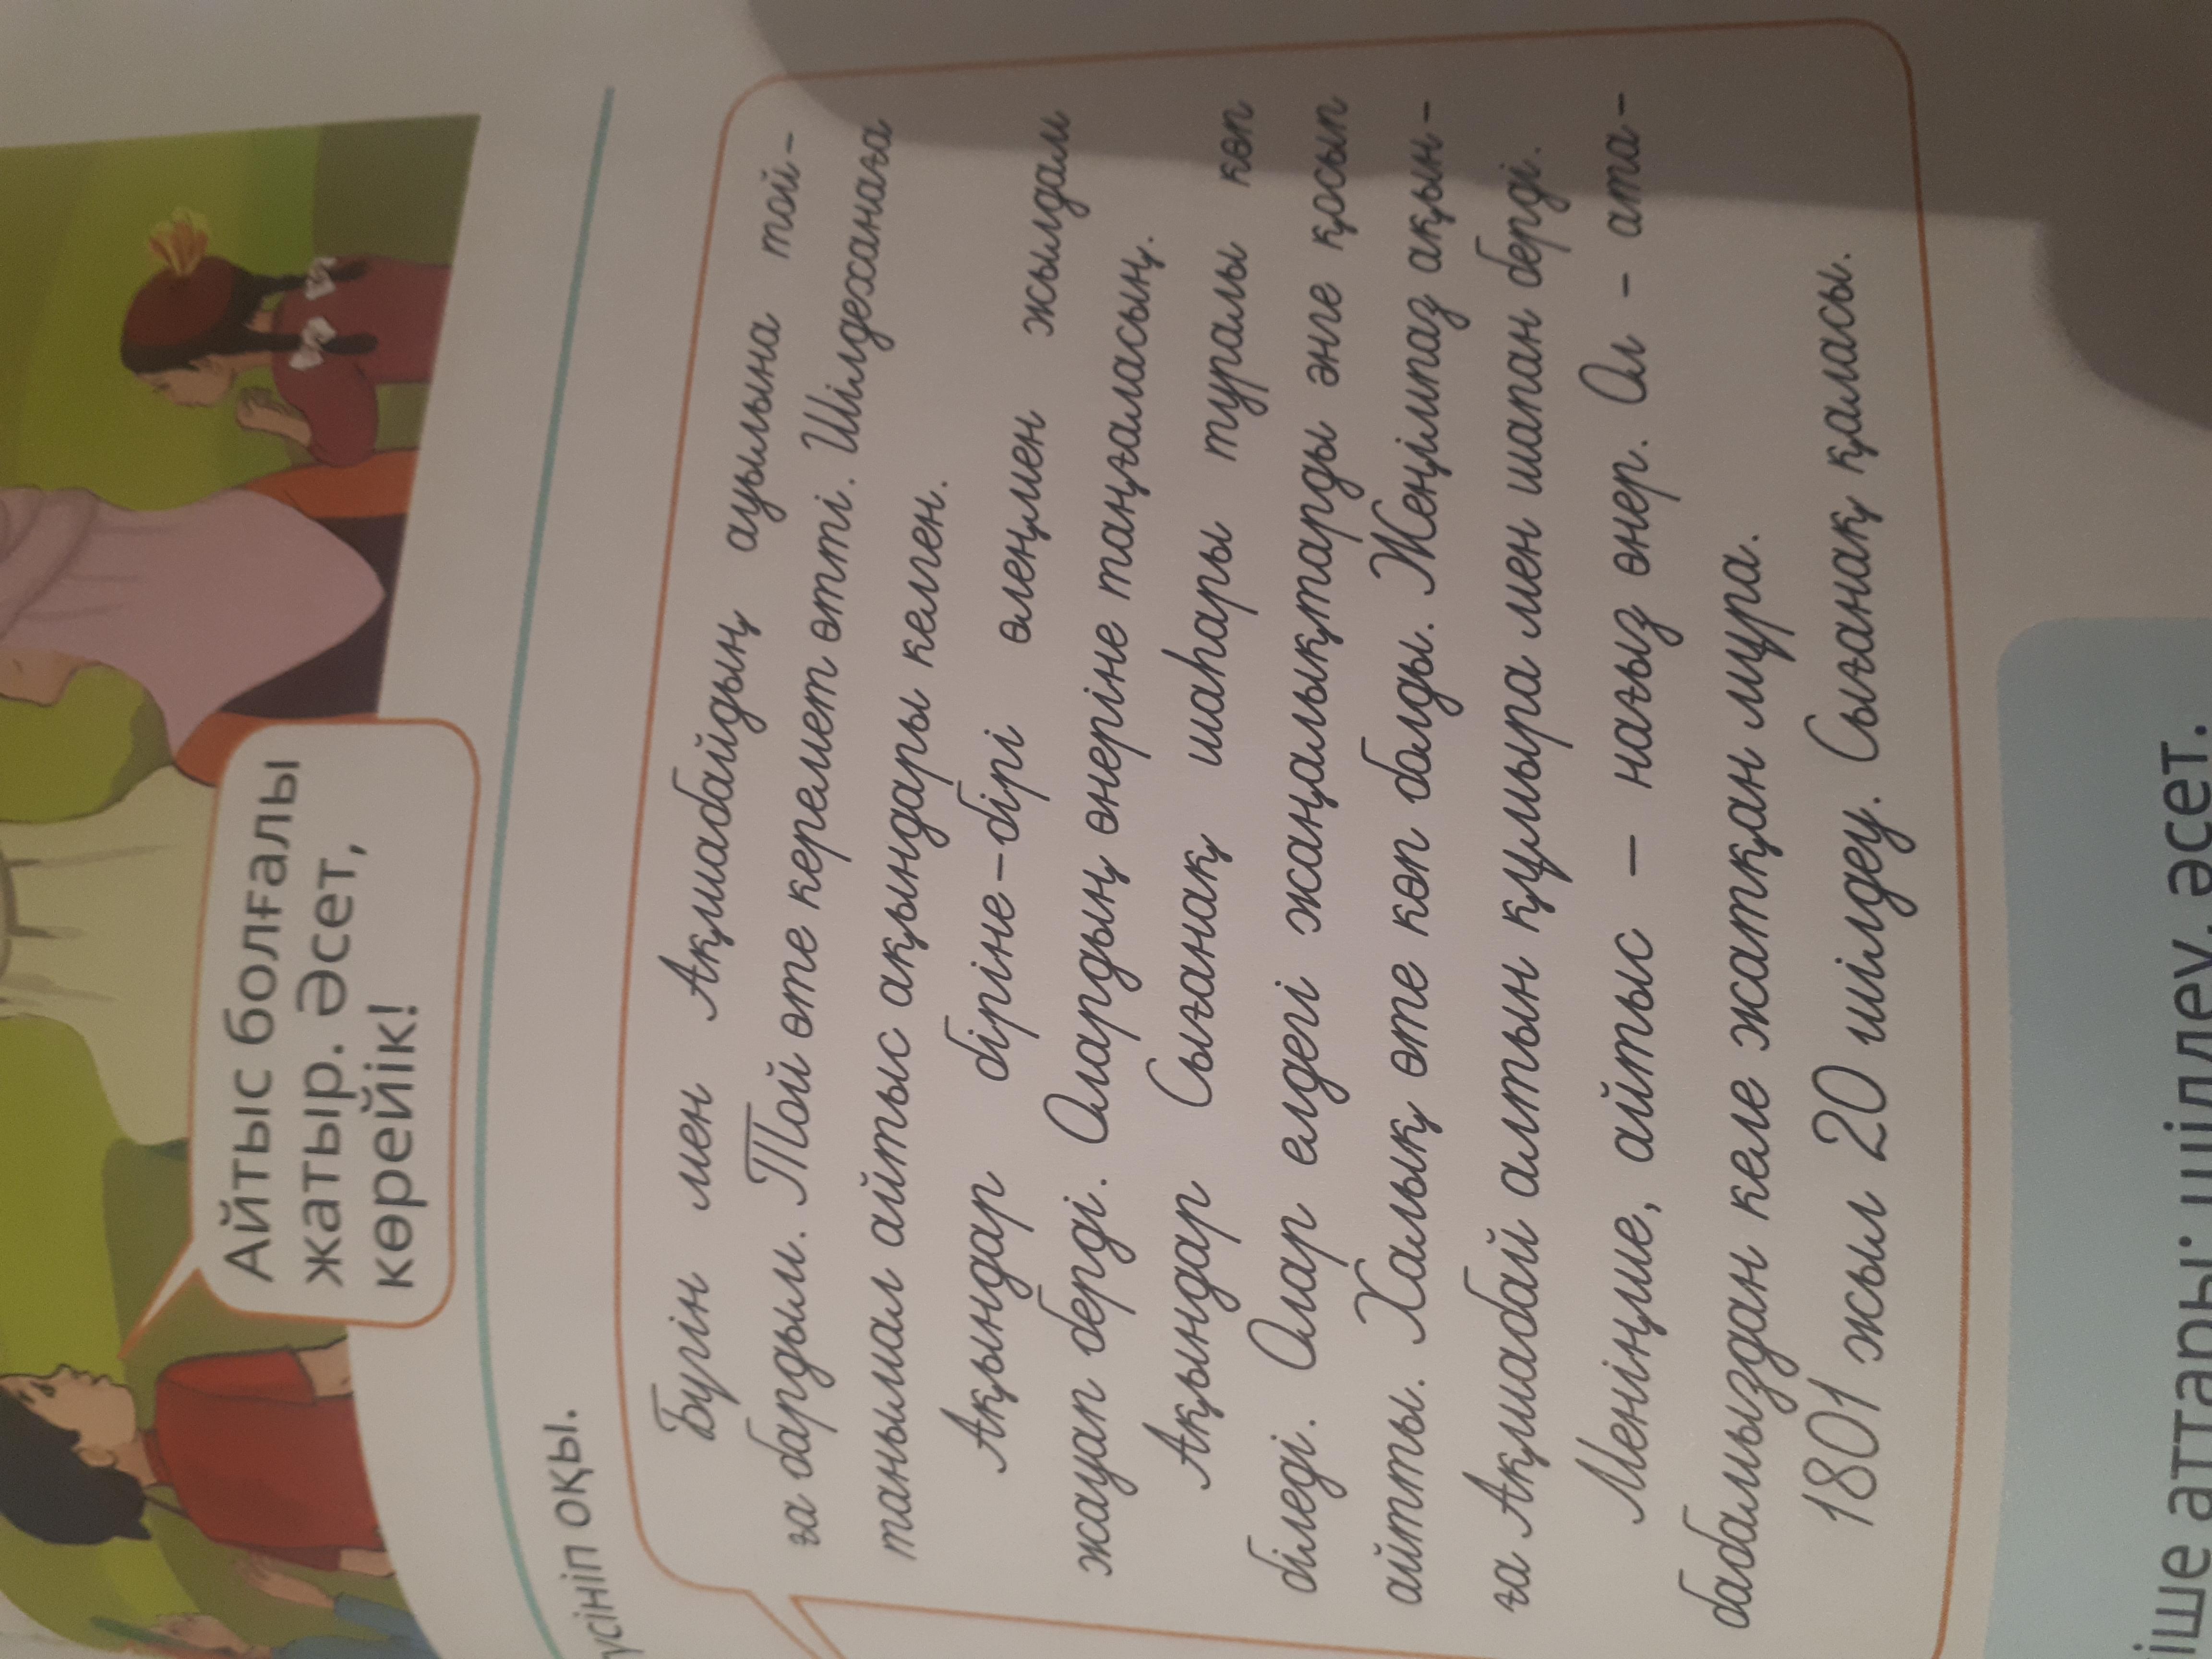 Айтыс болғалы
жатыр. Әсет,
көрейік!
оқы.
Бүгін мен Ақшабайдың ауылына той-
ға бардым. Той өте керемет өтті. Шілдеханаға
танымал айтыс ақындары келген.
Ақындар біріне-бірі өлеңмен жылдам
жауап берді. Олардың өнеріне таңғаласың.
Ақындар Сығанақ шаһары туралы көп
біледі. Олар елдегі жаңалықтарды әнге қосып
айтты. Халық өте көп болды. Жеңімпаз ақын-
ға Ақшабай алтын құмыра мен шапан берді.
Меніңше, айтыс – нағыз өнер. Ол - ата-
бабамыздан келе жатқан мұра.
1801 жыл 20 шілдеу. Сығанақ қаласы.
аттары: шілдеу, әсет.